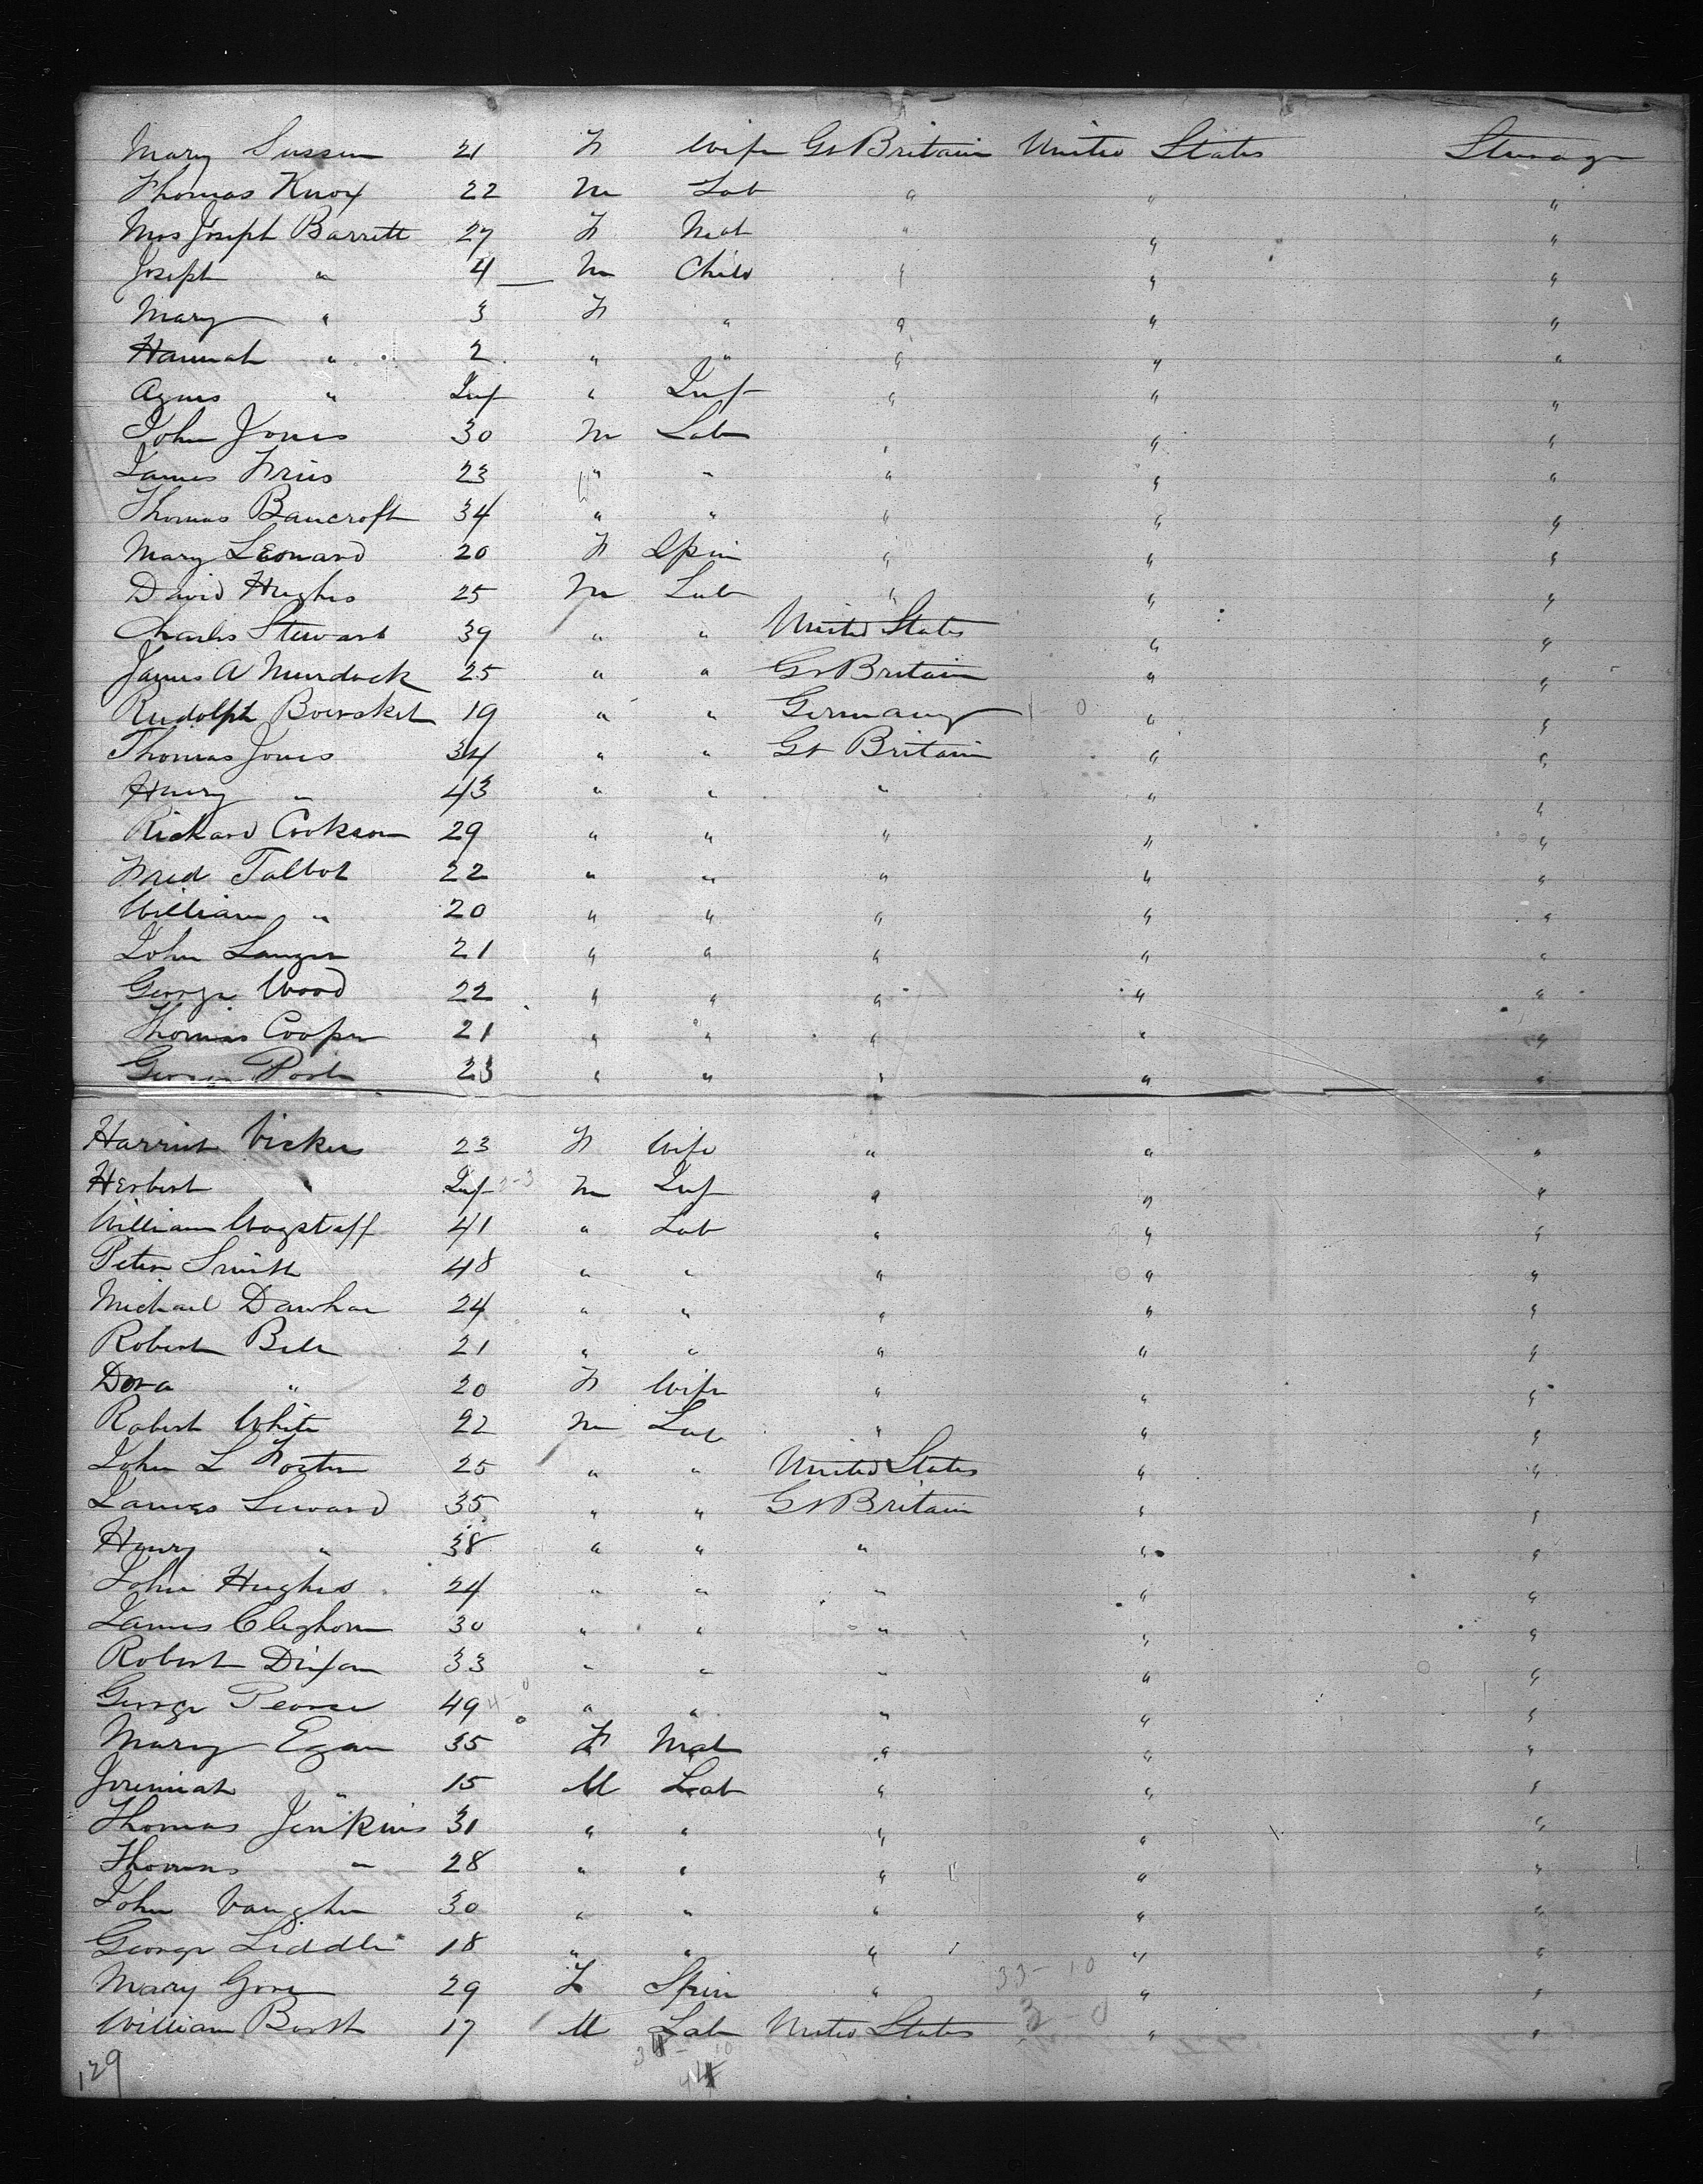 Mary Sussem 21 F Wife Gt Britain United States Steerage
Thomas Knox 22 M Lab " " "
Mrs Joseph Barrett 27 F Mat " " "
Joseph " 4 M Child " " "
Mary " 3 F " " " "
Hannah " 2 " " " " "
Agnes " Inf " Inf " " "
John Jones 30 M Lab " " "
James Fries 23 " " " " "
Thomas Bancroft 34 " " " " "
Mary Leonard 20 F Spin " " "
David Hughes 25 M Lab " " "
Charles Stewart 39 " " United States " "
James A Murdock 25 " " Gt Britain " "
Rudolph 19 " " Germany 1-0 " "
Thomas Jones 34 " " Gt Britain " "
Henry " 43 " " " " "
Richard Cookson 29 " " " " "
Fred Talbot 22 " " " " "
William " 20 " " " " "
John 21 " " " " "
George Wood 22 " " " " "
Thomas Cooper 21 " " " " "
George 23 " " " " "
Harriet Vickers 23 F Wife " " "
Herbert " Inf M Inf " " "
William Wagstaff 41 " Lab " " "
Peter Smith 48 " " " " "
Michael 24 " " " " "
Robert Bell 21 " " " " "
Dora " 20 F Wife " " "
Robert White 22 M Lab " " "
John L Foster 25 " " United States " "
James Seward 35 " " Gt Britain " "
Henry " 38 " " " " "
John Hughes 24 " " " " "
James Cleghorn 30 " " " " "
Robert Dixon 33 " " " " "
George Pearce 49 4-0 " " " " "
Mary Egan 35 F Mat " " "
Jeremiah " 15 M Lab " " "
Thomas Jenkins 31 " " " " "
Thomas " 28 " " " " "
John Vaughn 30 " " " " "
George Liddle 18 " " " " "
Mary Gore 29 F Spin " 33-10 " "
William 17 M Lab United States 3-0 " "
129